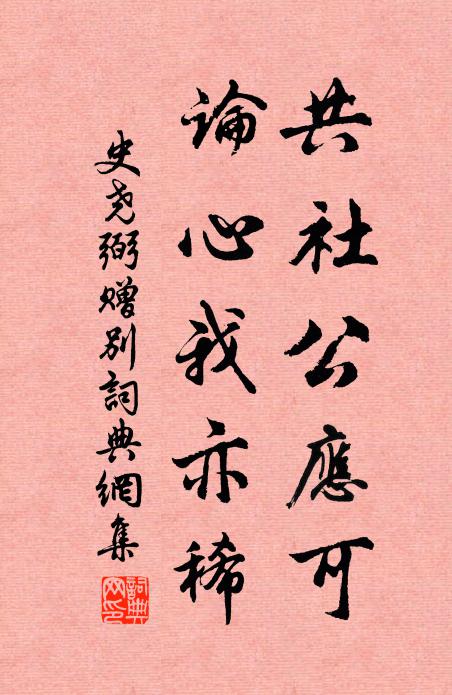 共社公應可
論心我亦稀
史堯弼贈別詞典網集
詞典網印